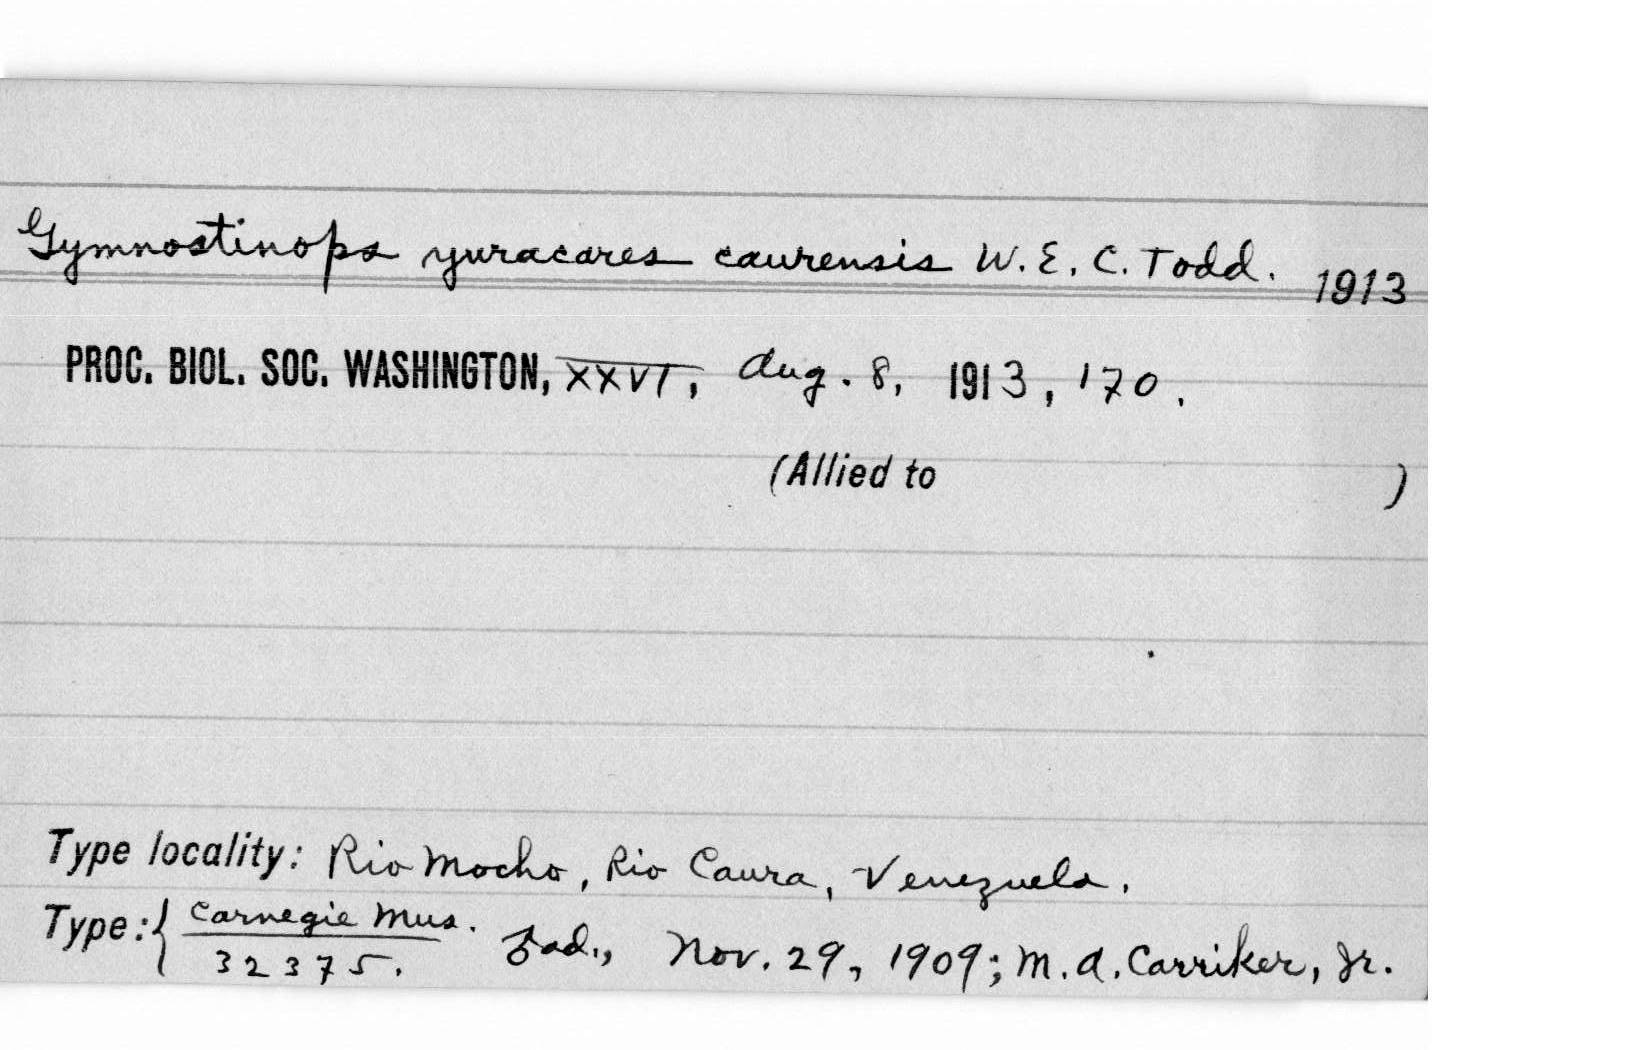 Gymnostinops yuracares caurensis W. E. C. Todd. 1913
PROC. BIOL. SOC. WASHINGTON, XXVI, Aug. 8, 1913, 170.
(Allied to )
Type locality: Rio Mocho, Rio Caura, Venezuela.
Type: { Carnegie Mus. ad., Nov. 29, 1909; M. A. Carriker, Jr.
32375.